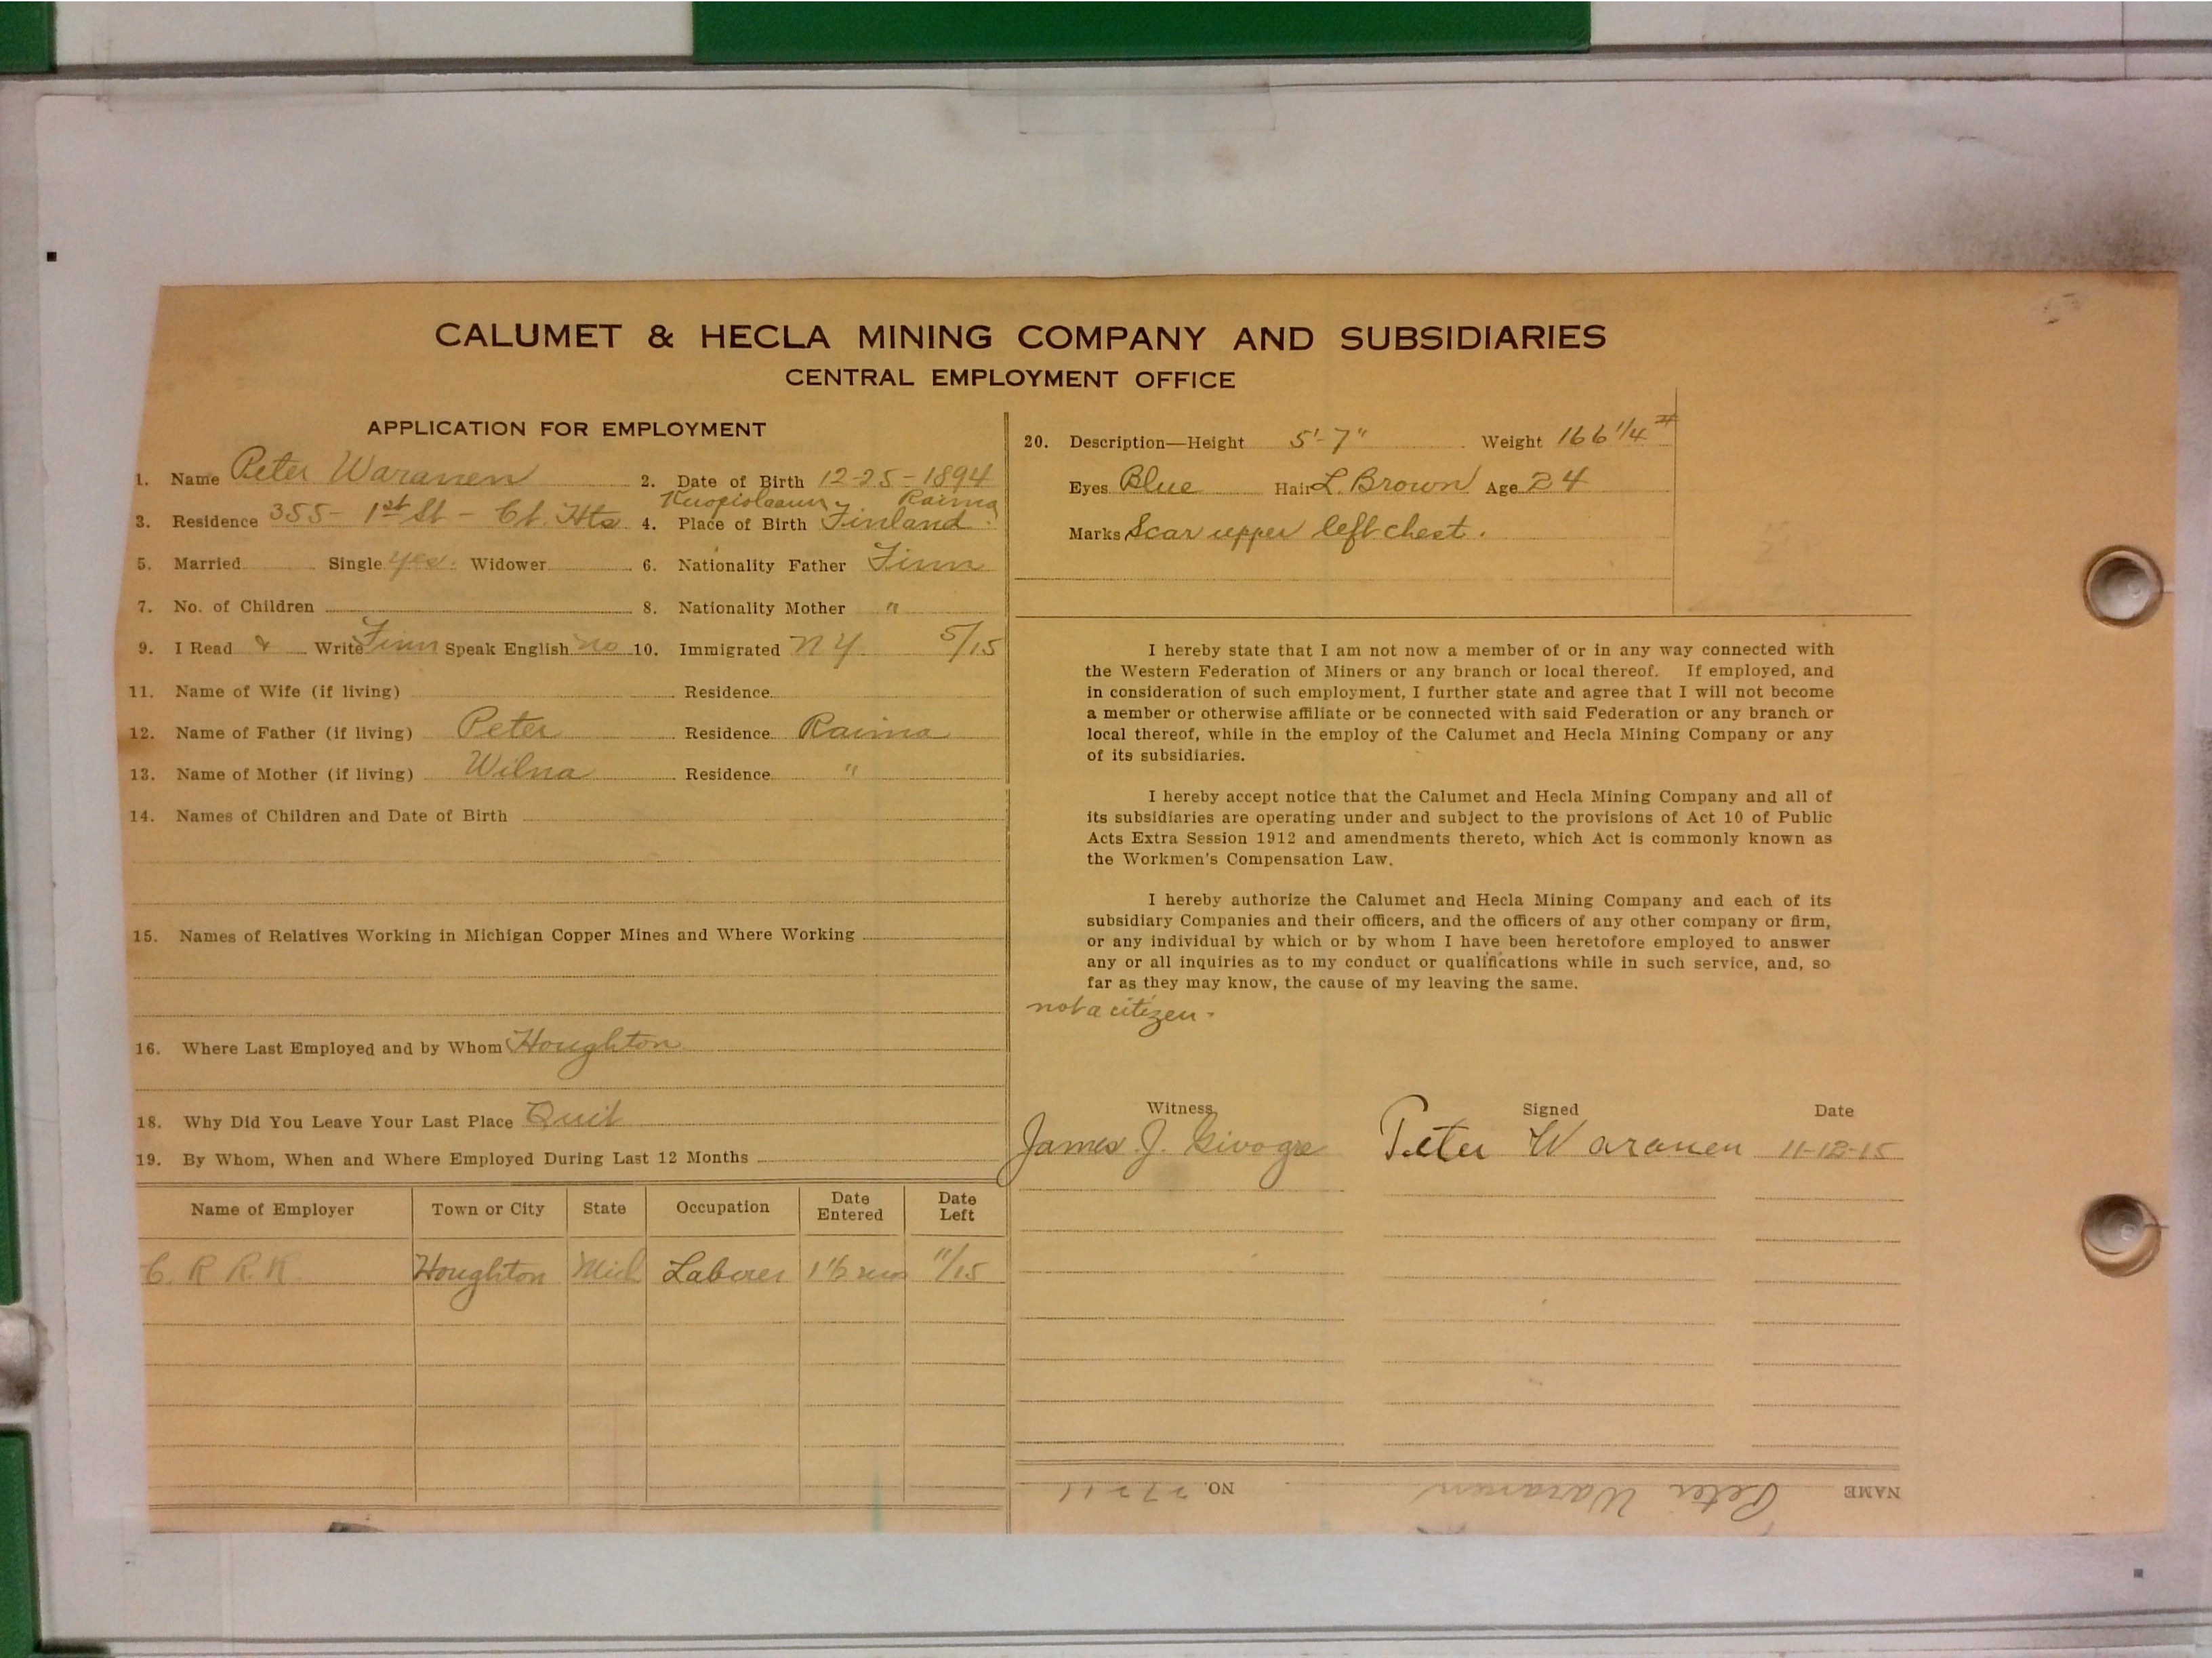 CALUMET & HECLA MINING COMPANY AND SUBSIDIARIES
CENTRAL EMPLOYMENT OFFICE
APPLICATION FOR EMPLOYMENT
1. Name Peter Waranen 2. Date of Birth 12-25-1894
3. Residence 355- 1st St - Ct. Hts 4. Place of Birth Raima Finland.
5. Married Single yes. Widower 6. Nationality Father Finn
7. No. of Children 8. Nationality Mother "
9. I Read & Write Finn Speak English no 10. Immigrated N Y. 5/15
11. Name of Wife (if living) Residence
12. Name of Father (if living) Peter Residence Raima
13. Name of Mother (if living) Wilna Residence "
14. Names of Children and Date of Birth
15. Names of Relatives Working in Michigan Copper Mines and Where Working
16. Where Last Employed and by Whom Houghton
18. Why Did You Leave Your Last Place Quit
19. By Whom, When and Where Employed During Last 12 Months
Name of Employer Town or City State Occupation Date Entered Date Left
C. R R.R. Houghton Mich Laborer 1½ mos 11/15
20. Description—Height 5'-7" Weight 166 1/4 #
Eyes Blue Hair L. Brown Age 24
Marks Scar upper left chest.
I hereby state that I am not now a member of or in any way connected with
the Western Federation of Miners or any branch or local thereof. If employed, and
in consideration of such employment, I further state and agree that I will not become
a member or otherwise affiliate or be connected with said Federation or any branch or
local thereof, while in the employ of the Calumet and Hecla Mining Company or any
of its subsidiaries.
I hereby accept notice that the Calumet and Hecla Mining Company and all of
its subsidiaries are operating under and subject to the provisions of Act 10 of Public
Acts Extra Session 1912 and amendments thereto, which Act is commonly known as
the Workmen's Compensation Law.
I hereby authorize the Calumet and Hecla Mining Company and each of its
subsidiary Companies and their officers, and the officers of any other company or firm,
or any individual by which or by whom I have been heretofore employed to answer
any or all inquiries as to my conduct or qualifications while in such service, and, so
far as they may know, the cause of my leaving the same.
not a citizen.
Witness Signed Date
James J. Peter Waranen 11-12-15
NAME Peter Waranen NO. 27211